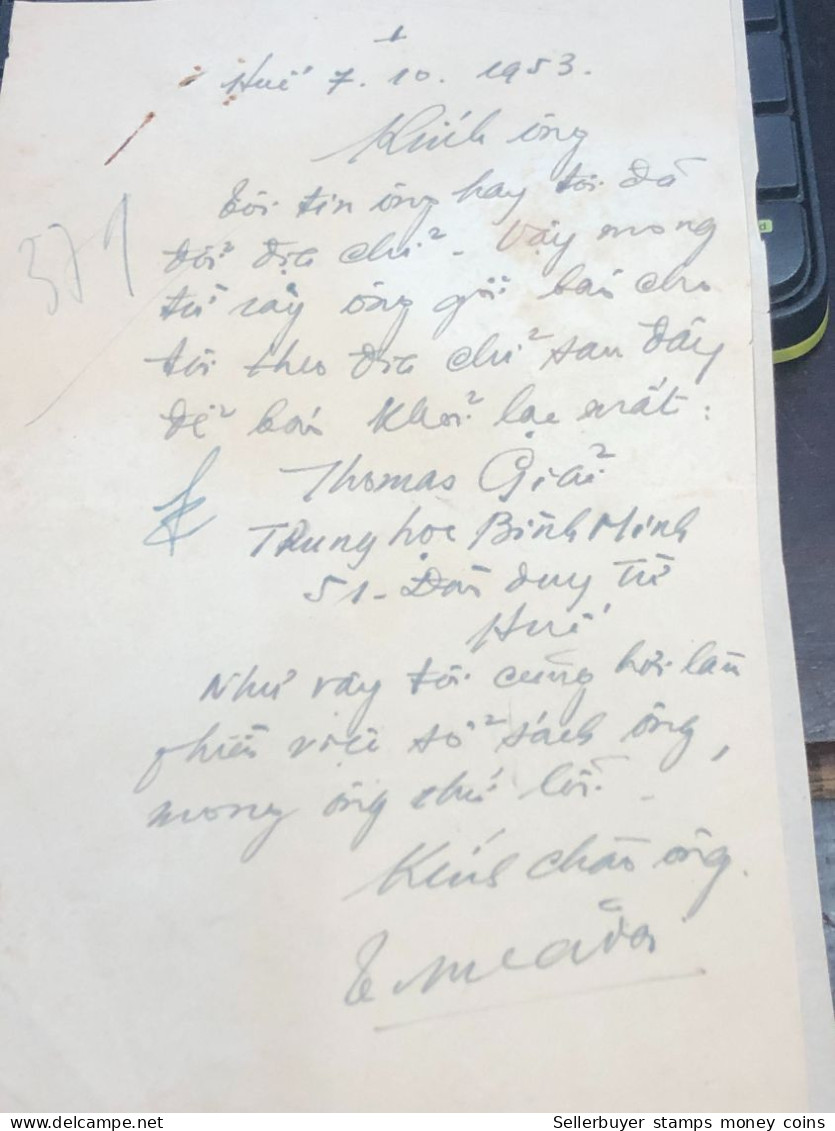 Huế 7. 10. 1953.
Kính ông
Tôi tin ông hay tôi đã
đổi địa chỉ. Vậy mong
từ rày ông gởi báo cho
tôi theo địa chỉ sau đây
để báo khỏi lạc mất:
Thomas Giải
Trung học Bình Minh
51 - Đào duy Từ
Huế
Như vậy tôi cũng hơi làm
phiền việc sổ sách ông,
mong ông thứ lỗi.
Kính chào ông.
571
Sellerbuyer stamps money coins